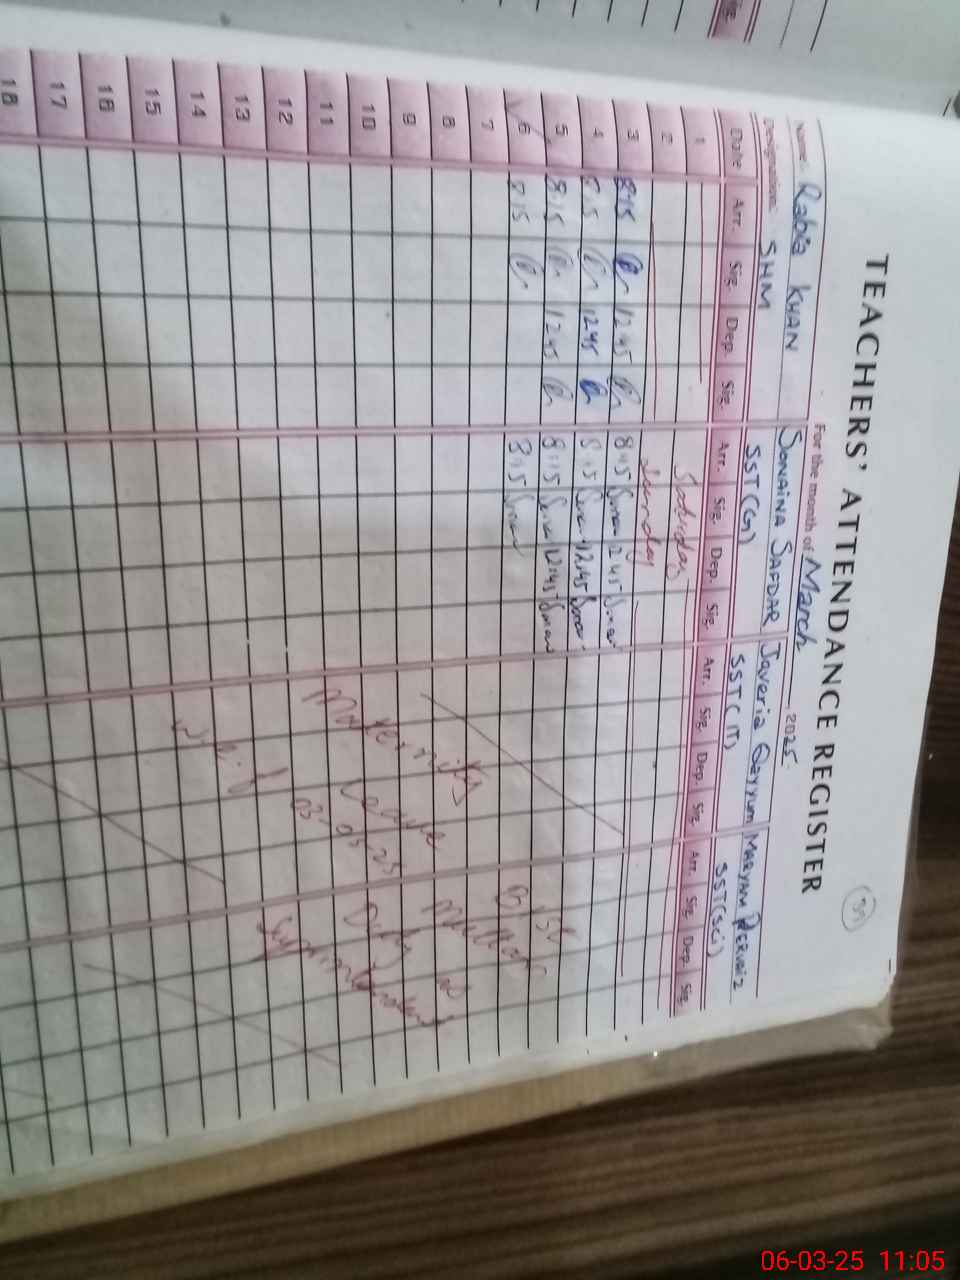 TEACHERS' ATTENDANCE REGISTER
31
For the month of March, 2025.
Name: Rabia KHAN SONAINA SAFDAR Javeria Qayyum MARYAM PERVAIZ
Designation: SHM SST(G) SST(IT) SST(Sci)
Date Arr. Sig. Dep. Sig. Arr. Sig. Dep. Sig. Arr. Sig. Dep. Sig. Arr. Sig. Dep. Sig.
1 Saturday
2 Sunday
3 8:15 12:45 8:15 12:45
4 8:15 12:45 8:15 12:45
5 8:15 12:45 8:15 12:45
6 8:15 8:15
7
8
9
10
11
12
13
14
15
16
17
18
Maternity
Leave
w.e.f 03-03-25
Duty as
Sig.
06-03-25 11:05